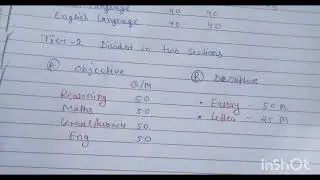 Language 40 40
English Language 40 40
Tier-2 Divided in two sections
A Objective
B Descriptive
Q/M
Reasoning 50
Maths 50
50
Eng 50
• Essay - 50 M
• Letter - 25 M
InShOt